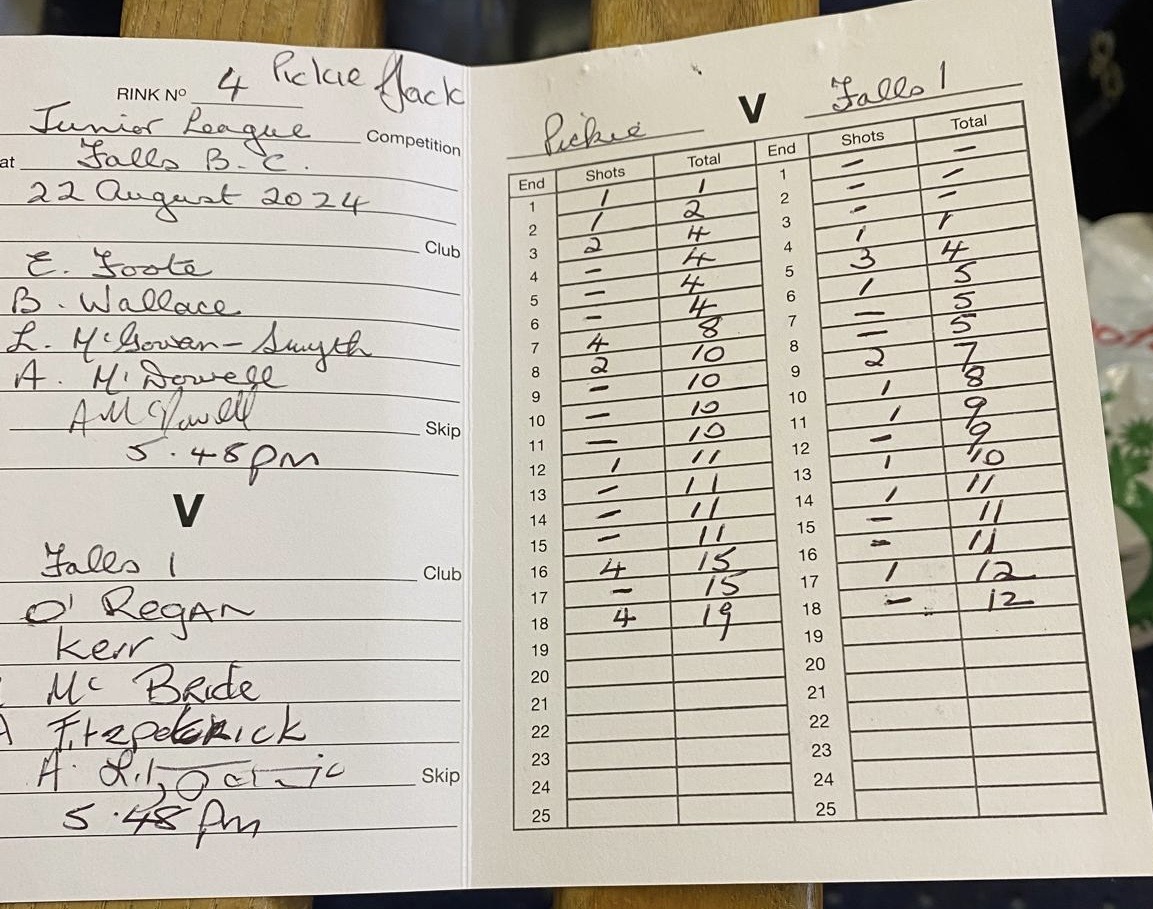 RINK Nº 4 Pickie Jack
Junior League Competition
at Falls B.C.
22 August 2024
Club
E. Foote
B. Wallace
L. McGowan-Smyth
A. McDowell
A McDowell Skip
5.48pm
V
Falls 1 Club
O'Regan
Kerr
Mc Bride
A Fitzpatrick
A. Skip
5.48 pm
Pickie V Falls 1
End Shots Total End Shots Total
1 1 1 1 - -
2 1 2 2 - -
3 2 4 3 - -
4 - 4 4 1 1
5 - 4 5 3 4
6 - 4 6 1 5
7 4 8 7 - 5
8 2 10 8 - 5
9 - 10 9 2 7
10 - 10 10 1 8
11 - 10 11 1 9
12 1 11 12 - 9
13 - 11 13 1 10
14 - 11 14 1 11
15 - 11 15 - 11
16 4 15 16 - 11
17 - 15 17 1 12
18 4 19 18 - 12
19 19
20 20
21 21
22 22
23 23
24 24
25 25